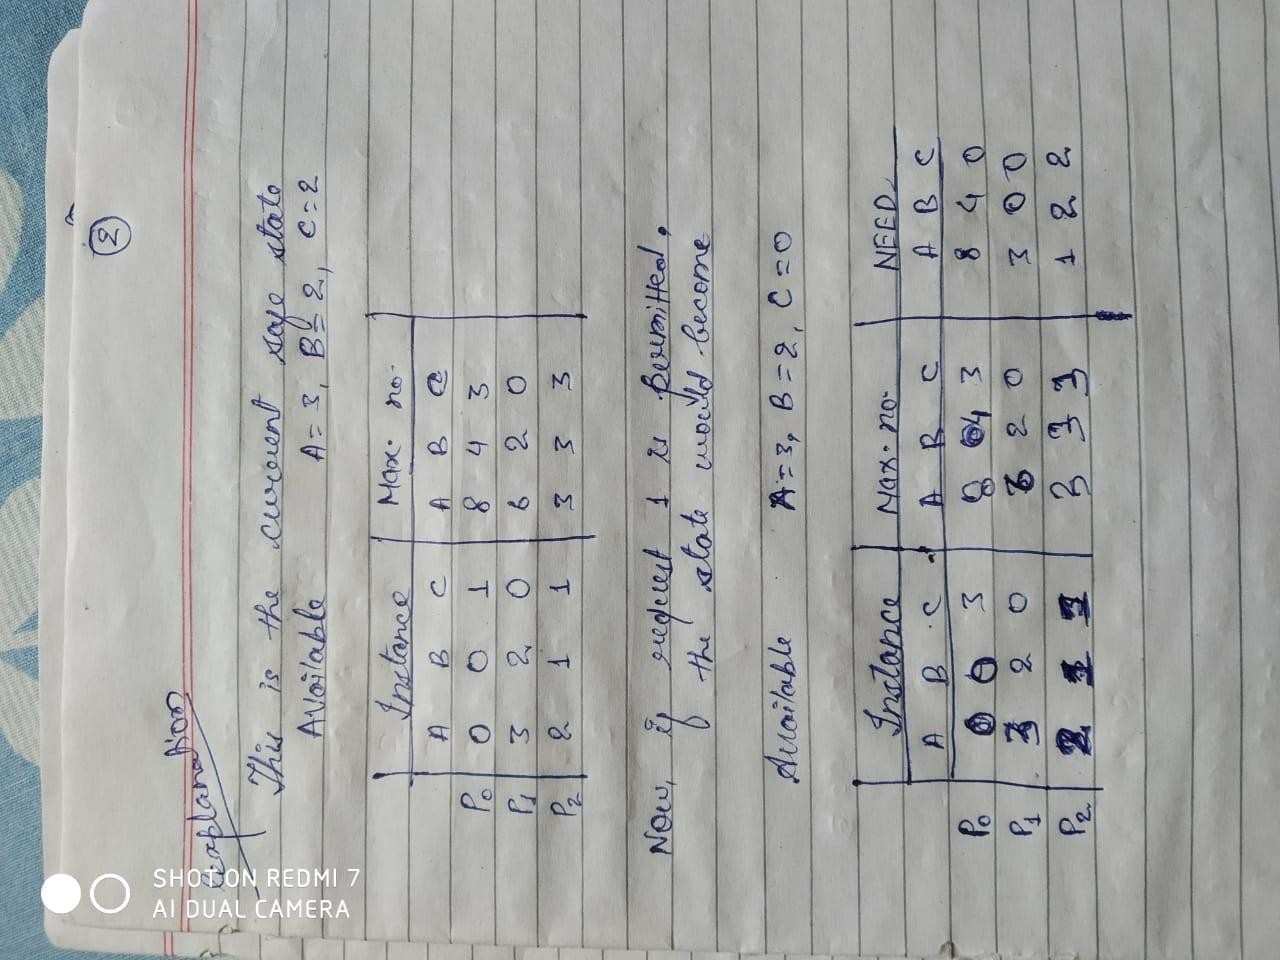 ②
Explanation
This is the current safe state
Available A=3, B=2, C=2
Instance Max. no.
A B C A B C
P0 0 0 1 8 4 3
P1 3 2 0 6 2 0
P2 2 1 1 3 3 3
Now, if request 1 is Permitted,
the state would become
Available A=3, B=2, C=0
Instance Max. no. NEED
A B C A B C A B C
P0 0 0 3 8 4 3 8 4 0
P1 3 2 0 6 2 0 3 0 0
P2 2 1 1 3 3 3 1 2 2
SHOT ON REDMI 7
AI DUAL CAMERA